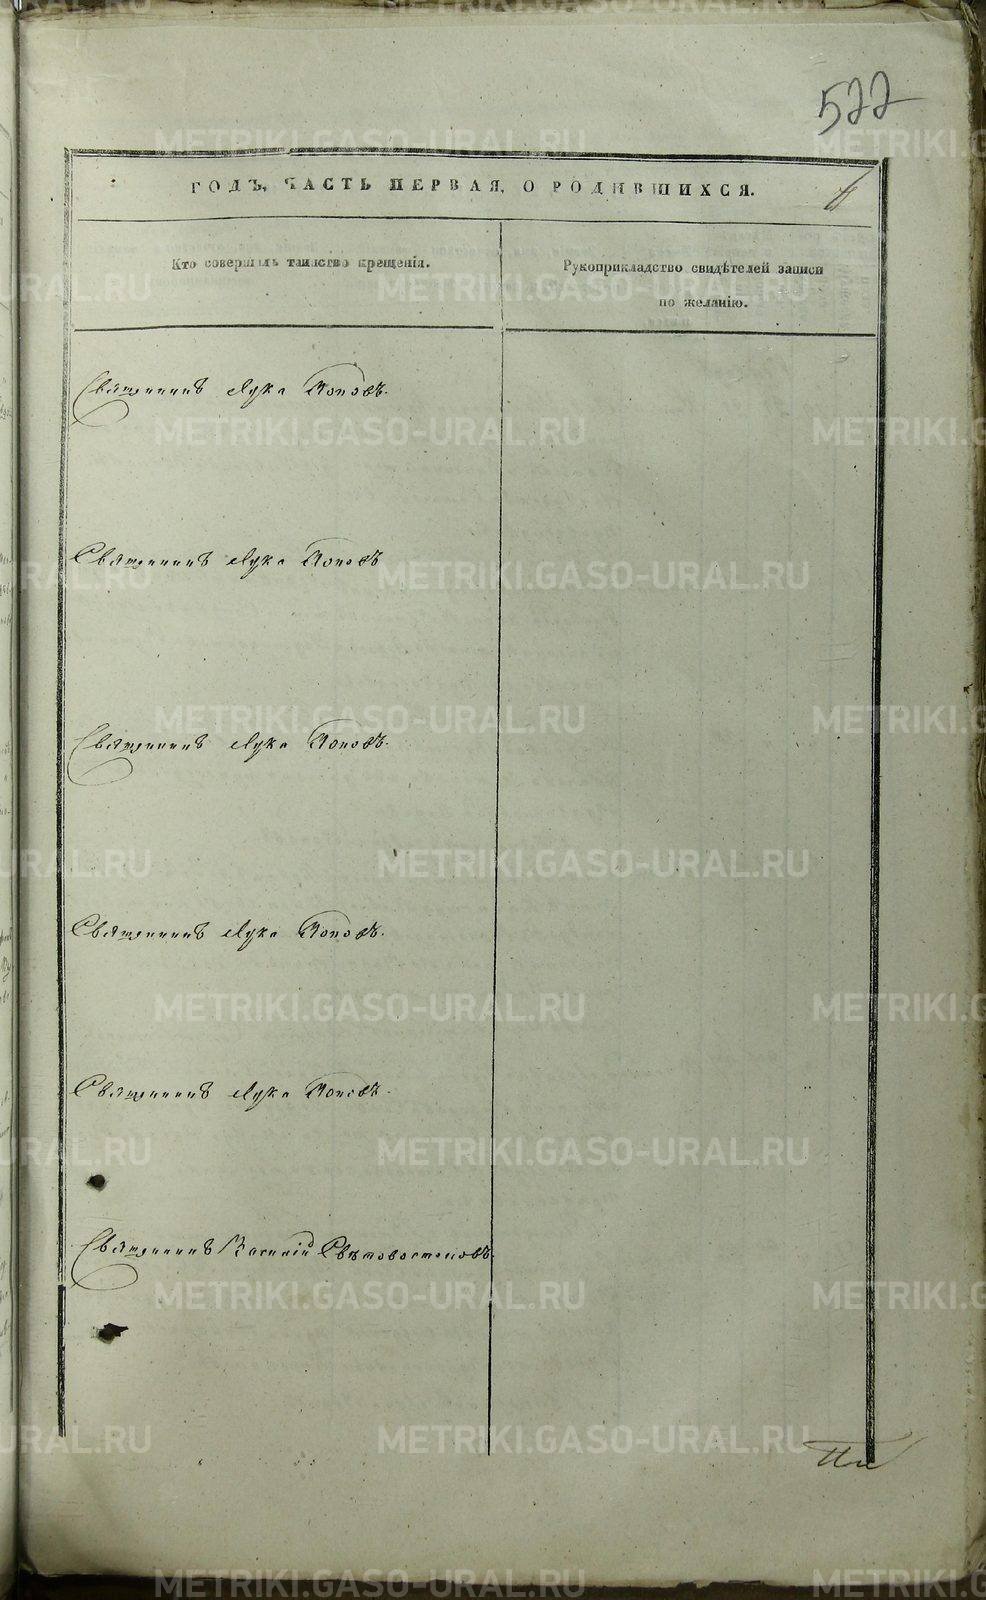 522
ГОДЪ, ЧАСТЬ ПЕРВАЯ, О РОДИВШИХСЯ.
Кто совершилъ таинство крещенія.
Рукоприкладство свидѣтелей записи
по желанію.
Священникъ Лука Поповъ.
Священникъ Лука Поповъ
Священникъ Лука Поповъ.
Священникъ Лука Поповъ.
Священникъ Лука Поповъ.
Священникъ Василій Свѣтовостоковъ.
METRIKI.GASO-URAL.RU